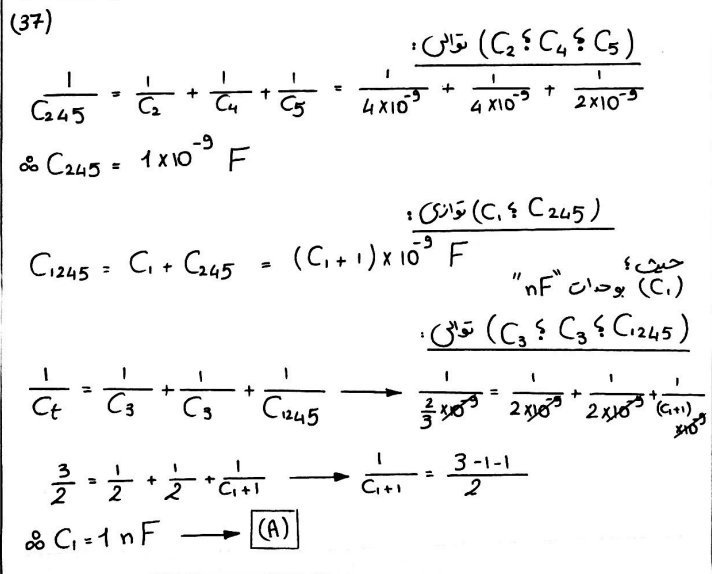 (37)
توالي (C₂ ؟ C₄ ؟ C₅) :
1/C₂₄₅ = 1/C₂ + 1/C₄ + 1/C₅ = 1/4×10⁻⁹ + 1/4×10⁻⁹ + 1/2×10⁻⁹
∴ C₂₄₅ = 1×10⁻⁹ F
توازي (C₁ ؟ C₂₄₅) :
C₁₂₄₅ = C₁ + C₂₄₅ = (C₁+1)×10⁻⁹ F
حيث ؟
(C₁) بوحدات "nF"
توالي (C₃ ؟ C₃ ؟ C₁₂₄₅) :
1/Ct = 1/C₃ + 1/C₃ + 1/C₁₂₄₅ → 1/(2/3 ×10⁻⁹) = 1/2×10⁻⁹ + 1/2×10⁻⁹ + 1/(C₁+1)×10⁻⁹
3/2 = 1/2 + 1/2 + 1/C₁+1 → 1/C₁+1 = 3-1-1/2
∴ C₁ = 1 nF → (A)